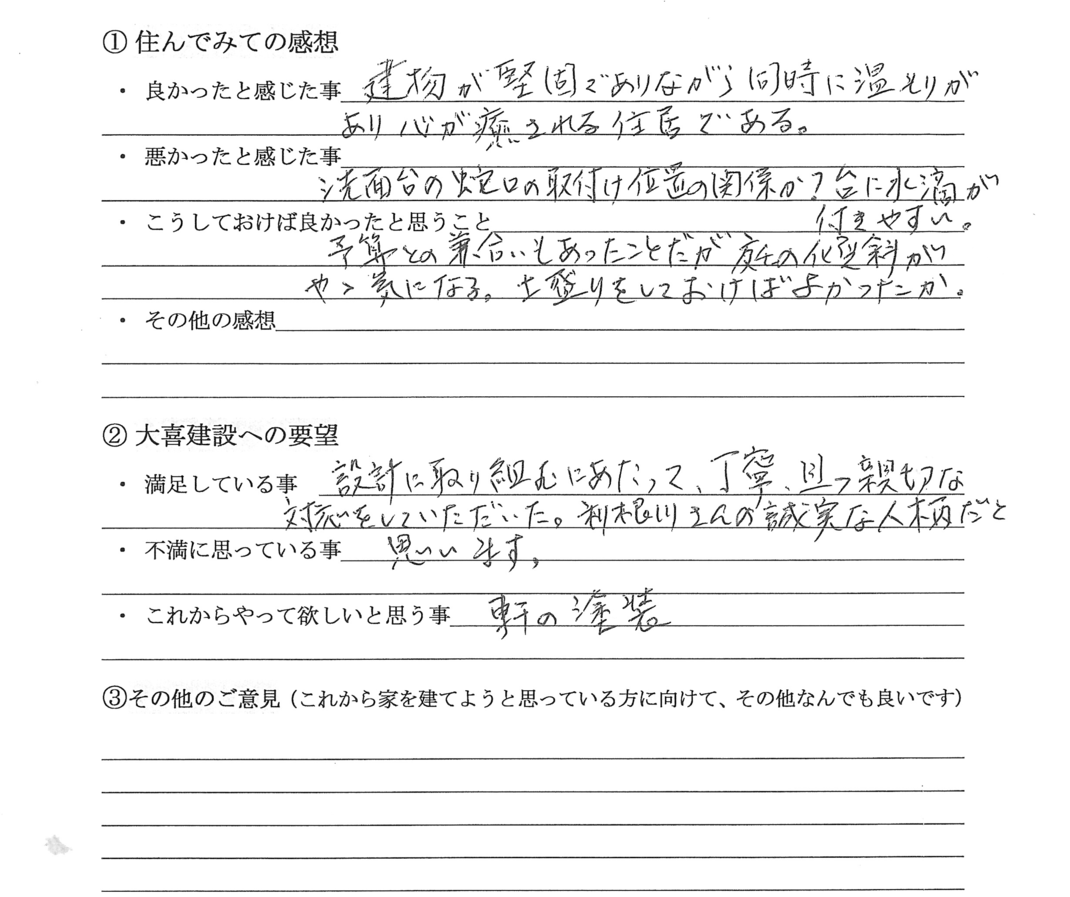 ① 住んでみての感想
・ 良かったと感じた事 建物が堅固でありながら同時に温もりが
あり心が癒される住居である。
・ 悪かったと感じた事
洗面台の蛇口の取付け位置の関係か?台に水滴が
・ こうしておけば良かったと思うこと 付きやすい。
予算との兼合いもあったことだが 傾斜が
やゝ気になる。土盛りをしておけばよかったか。
・ その他の感想
② 大喜建設への要望
・ 満足している事 設計に取り組むにあたって、丁寧、且つ親切な
対応をしていただいた。利根川さんの誠実な人柄だと
・ 不満に思っている事 思います。
・ これからやって欲しいと思う事 軒の塗装
③その他のご意見（これから家を建てようと思っている方に向けて、その他なんでも良いです）